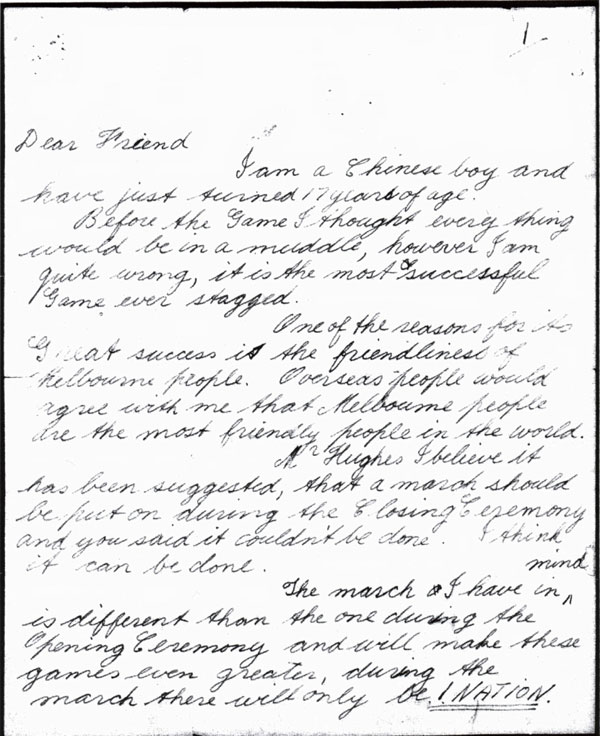 1
Dear Friend
I am a Chinese boy and
have just turned 17 years of age.
Before the Game I thought every thing
would be in a muddle, however I am
quite wrong, it is the most successful
Game ever stagged.
One of the reasons for its
Great success is the friendliness of
Melbourne people. Overseas people would
agree with me that Melbourne people
are the most friendly people in the world.
Mr Hughes I believe it
has been suggested, that a march should
be put on during the Closing Ceremony
and you said it couldn't be done. I think
it can be done.
mind
The march I have in ^
is different than the one during the
Opening Ceremony and will make these
games even greater, during the
march there will only be 1 NATION.